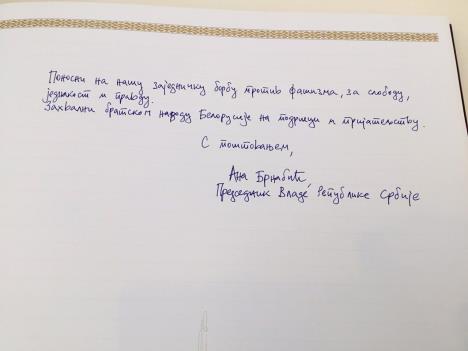 Поносни на нашу заједничку борбу против фашизма, за слободу,
једнакост и правду.
Захвални братском народу Белорусије на подршци и пријатељству.
С поштовањем,
Ана Брнабић
Председник Владе Републике Србије